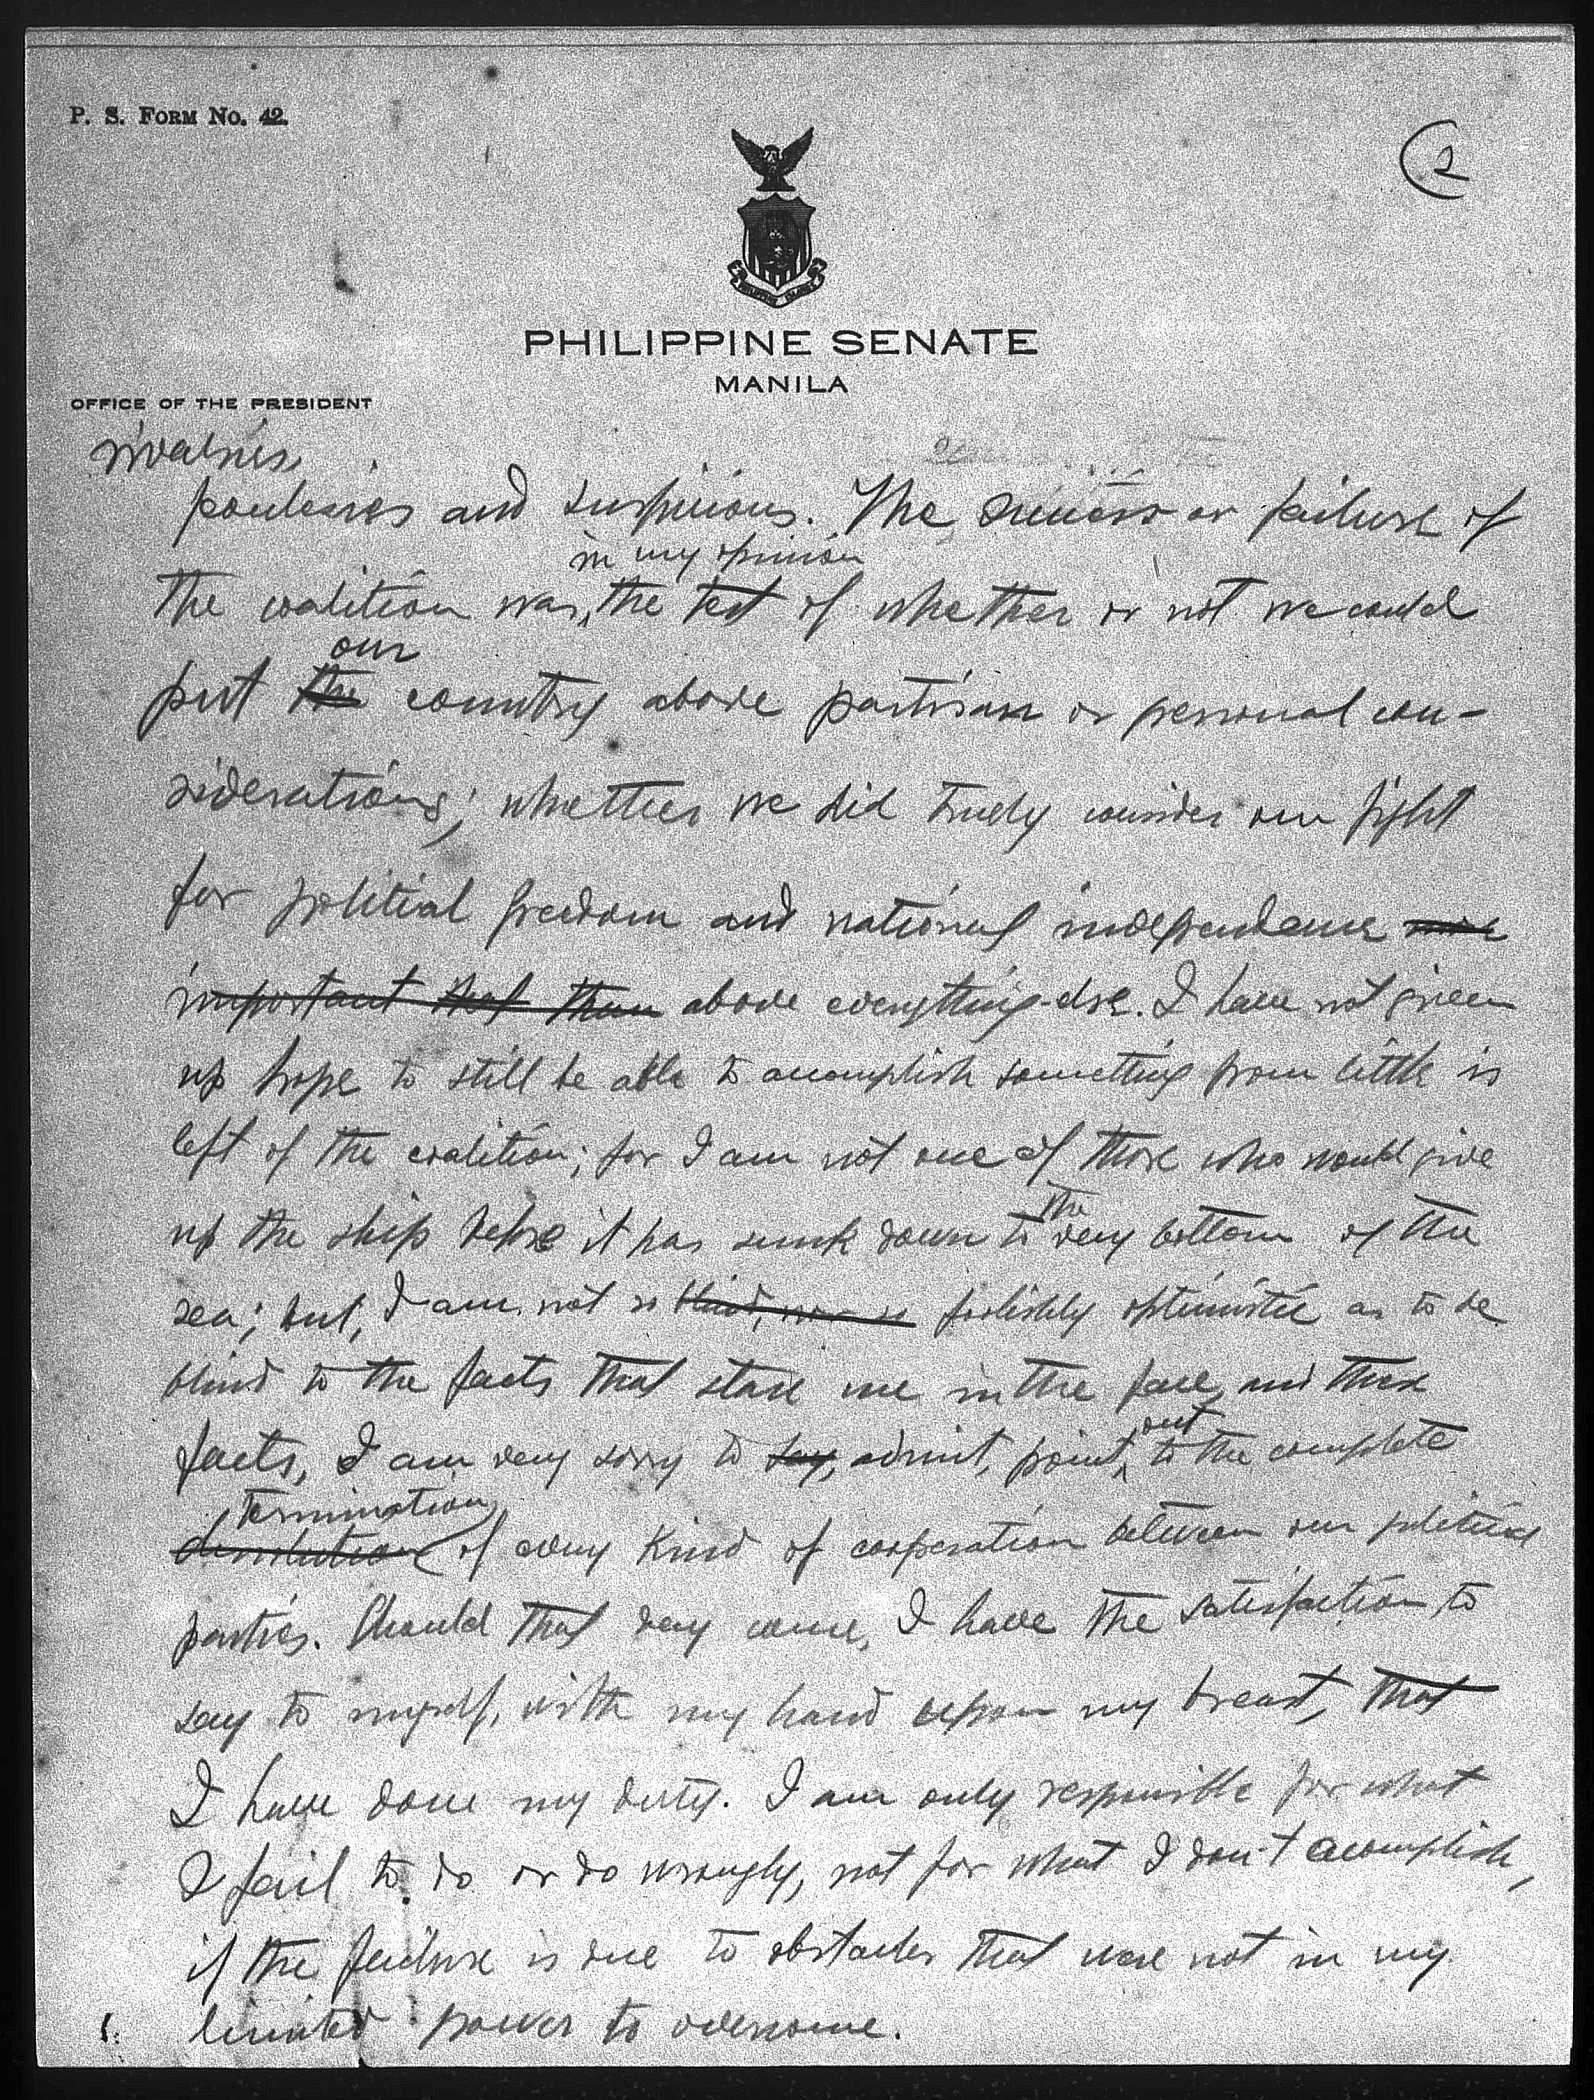 P. S. FORM NO. 42.
2
PHILIPPINE SENATE
MANILA
OFFICE OF THE PRESIDENT
rivalries,
jealousies and suspicions. The success or failure of
in my opinion
the coalition was, the test of whether or not we could
our
put the country above partisan or personal con-
siderations; whether we did truely consider our fight
for political freedom and national independence more
important that than above everything else. I have not given
up hope to still be able to accomplish something from little is
left of the coalition; for I am not one of those who would give
the
up the ship before it has sunk down to very bottom of the
sea; but, I am not so blind, nor so foolishly optimistic as to be
blind to the facts that stare me in the face, and these
out
facts, I am very sorry to say, admit, point, to the complete
termination
dissolution of every kind of cooperation between our political
parties. Should that day come, I have the satisfaction to
say to myself, with my hand upon my breast, that
I have done my duty. I am only responsible for what
I fail to do or do wrongly, not for what I don't accomplish,
if the failure is due to obstacles that were not in my
limited power to overcome.